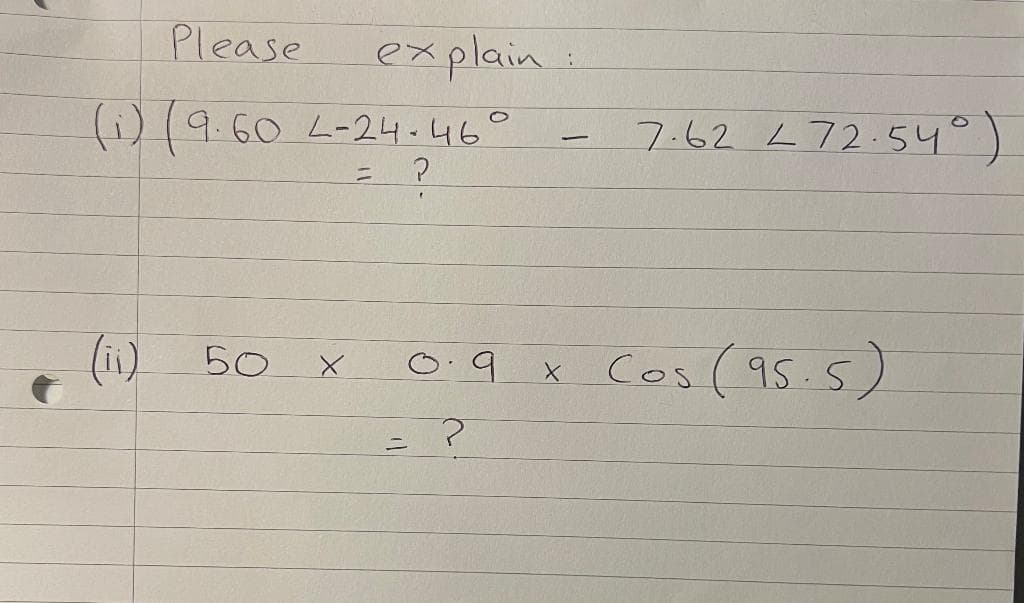 Please explain :
(i) (9.60 ∠-24.46° - 7.62 ∠72.54°)
= ?
(ii) 50 x 0.9 x Cos(95.5)
= ?